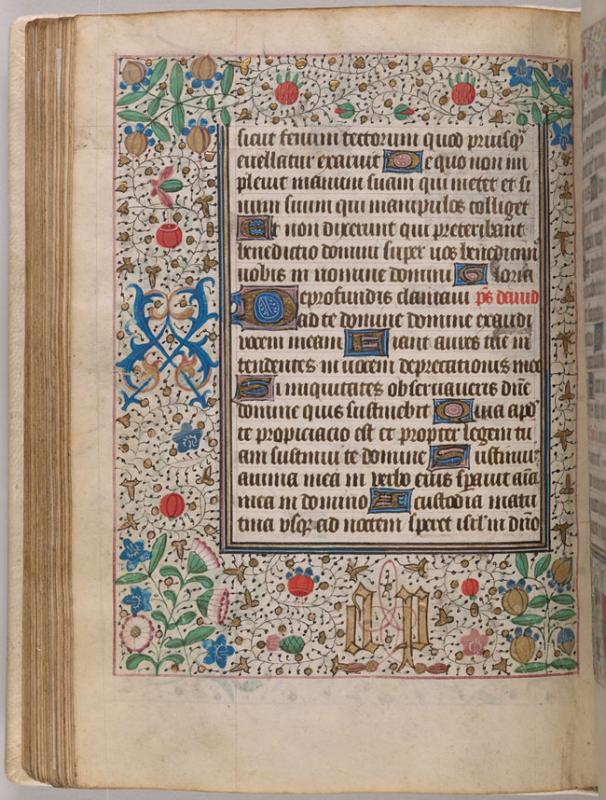 sicut fenum tectorum quod priusq̄
euellatur exaruit De quo non im
pleuit manum suam qui metet et si
num suum qui manipulos colliget
Et non dixerunt qui preteribant
benedictio domini super uos benediximꝰ
uobis in nomine domini Gloria
Deprofundis clamaui p̄s dauid
ad te domine domine exaudi
vocem meam Fiant aures tue in
tendentes in uocem deprecationis mee
Si iniquitates obseruaueris dn̄e
domine quis sustinebit Quia apd̄
te propiciacio est et propter legem tu
am sustinui te domine Sustinuit
anima mea in verbo eius sperauit aīa
mea in domino A custodia matu
tina vsqꝫ ad noctem speret isrl̄ in dn̄o